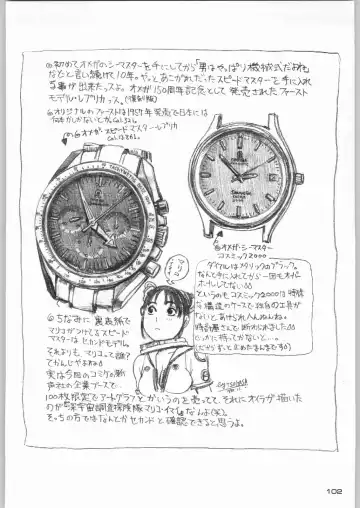 ◎初めてオメガのシーマスターを手にしてから「男はやっぱり機械式だよね」
などと言い続けて10年。やっとあこがれだったスピードマスターを手に入れ
る事が出来たっスよ。オメガ150周年記念として発売されたファースト
モデル・レプリカっス。(復刻版)
◎オリジナルのファーストは1957年発売で日本には
◎オメガ・スピードマスター・レプリカ
OMEGA
◎オメガ・シーマスター
コスミック2000
ダイヤルはメタリックのブラック。
なんと手に入れてから一回もオーバー
ホールしてない
というのもコスミック2000は特殊
な構造のケースで独自の工具が
ないとあけられへんねんな。
時計屋さんで断わられました
どっかに持ってかないと…
(だからずっと止めたまんまです)
マリコ
◎ちなみに裏表紙で
マリコがつけてるスピード
マスターはセカンドモデル。
それよりも、マリコって誰?
てかんじやよね
実は今回のコミケの
企業ブースで…
100枚限定でアートグラフとかいうのを売ってて、それにオイラが描いた
のが「宇宙調査探検隊マリコ・イマイ」なんよ(笑)。
そっちの方ではなんとかセカンドと確認できると思うよ。
102